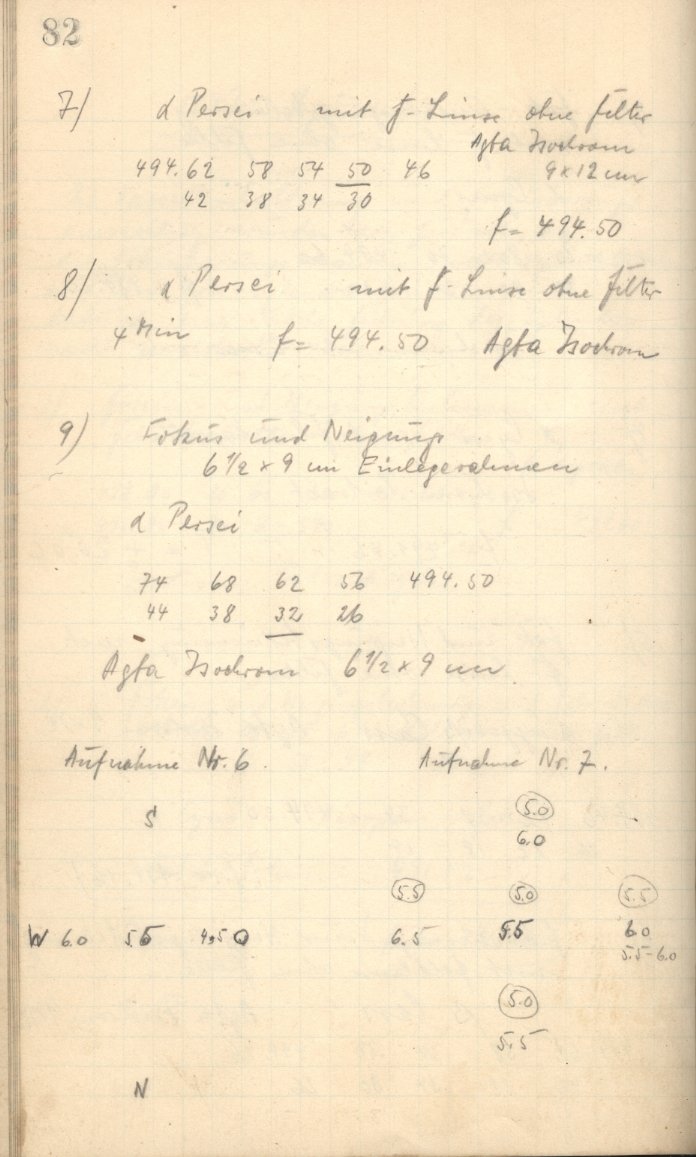 82
7) α Persei mit f-Linse ohne Filter
Agfa Isochrom
494.62 58 54 50 46 9x12 cm
42 38 34 30
f = 494.50
8) α Persei mit f-Linse ohne Filter
4 Min f = 494.50 Agfa Isochrom
9) Fokus und Neigung
6 1/2 x 9 cm Einlegerahmen
α Persei
74 68 62 56 494.50
44 38 32 26
Agfa Isochrom 6 1/2 x 9 cm
Aufnahme Nr. 6. Aufnahme Nr. 7.
S 5.0
6.0
5.5 5.0 5.5
W 6.0 5.5 6.5 5.5 6.0
5.5-6.0
5.0
5.5
N